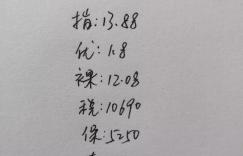 指:13.88
优:1.8
裸:12.08
税:10690
保:5250